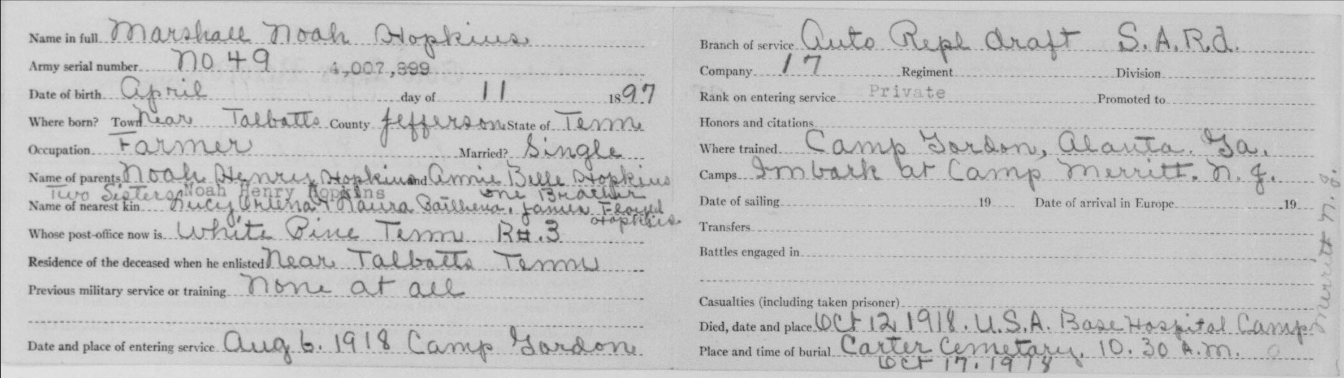 Name in full Marshall Noah Hopkins
Army serial number No 49 4,007,899
Date of birth April day of 11 1897
Where born? Town Near Talbatts County Jefferson State of Tenn
Occupation Farmer Married? Single
Name of parents Noah Henry Hopkins and Annie Belle Hopkins
Two Sisters Noah Henry Hopkins one Brother
Name of nearest kin Lucy & Laura James Floyd
Hopkins
Whose post-office now is White Pine Tenn R#.3
Residence of the deceased when he enlisted Near Talbatts Tenn
Previous military service or training None at all
Date and place of entering service Aug 6. 1918 Camp Gordon
Branch of service Auto Repl draft S.A.R.d.
Company 17 Regiment Division
Rank on entering service Private Promoted to
Honors and citations
Where trained Camp Gordon, Alanta. Ga.
Camps Imbark at Camp Merritt. N. J.
Date of sailing 19 Date of arrival in Europe 19
Transfers
Battles engaged in
Casualties (including taken prisoner)
Died, date and place Oct 12 1918. U.S.A. Base Hospital Camp
Merritt N. J.
Place and time of burial Carter Cemetary. 10.30 A.M.
Oct 17. 1918